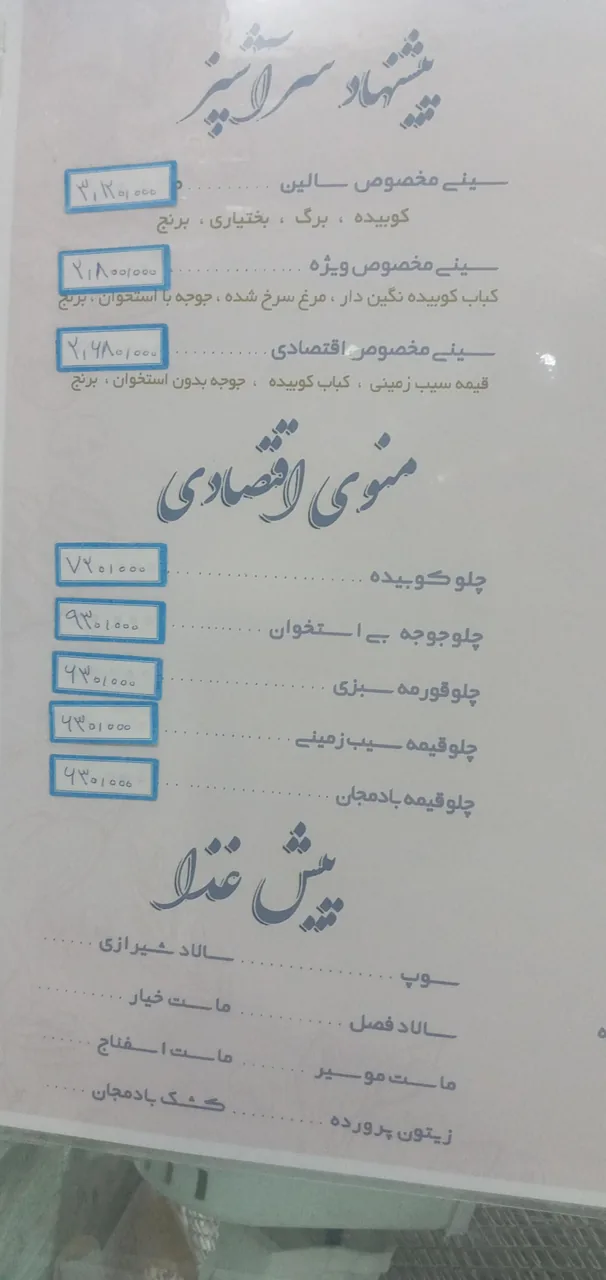 پیشنهاد سرآشپز
سینی مخصوص سالین .......... ۳,۲۰۰,۰۰۰
کوبیده ، برگ ، بختیاری ، برنج
سینی مخصوص ویژه .......... ۲,۸۰۰,۰۰۰
کباب کوبیده نگین دار ، مرغ سرخ شده ، جوجه با استخوان ، برنج
سینی مخصوص اقتصادی .......... ۲,۶۸۰,۰۰۰
قیمه سیب زمینی ، کباب کوبیده ، جوجه بدون استخوان ، برنج
منوی اقتصادی
چلو کوبیده .......... ۷۲۰,۰۰۰
چلو جوجه بی استخوان .......... ۹۳۰,۰۰۰
چلو قورمه سبزی .......... ۶۳۰,۰۰۰
چلو قیمه سیب زمینی .......... ۶۳۰,۰۰۰
چلو قیمه بادمجان .......... ۶۳۰,۰۰۰
پیش غذا
سوپ .......... سالاد شیرازی ......
سالاد فصل .......... ماست خیار ..........
ماست موسیر .......... ماست اسفناج ......
زیتون پرورده .......... کشک بادمجان ......